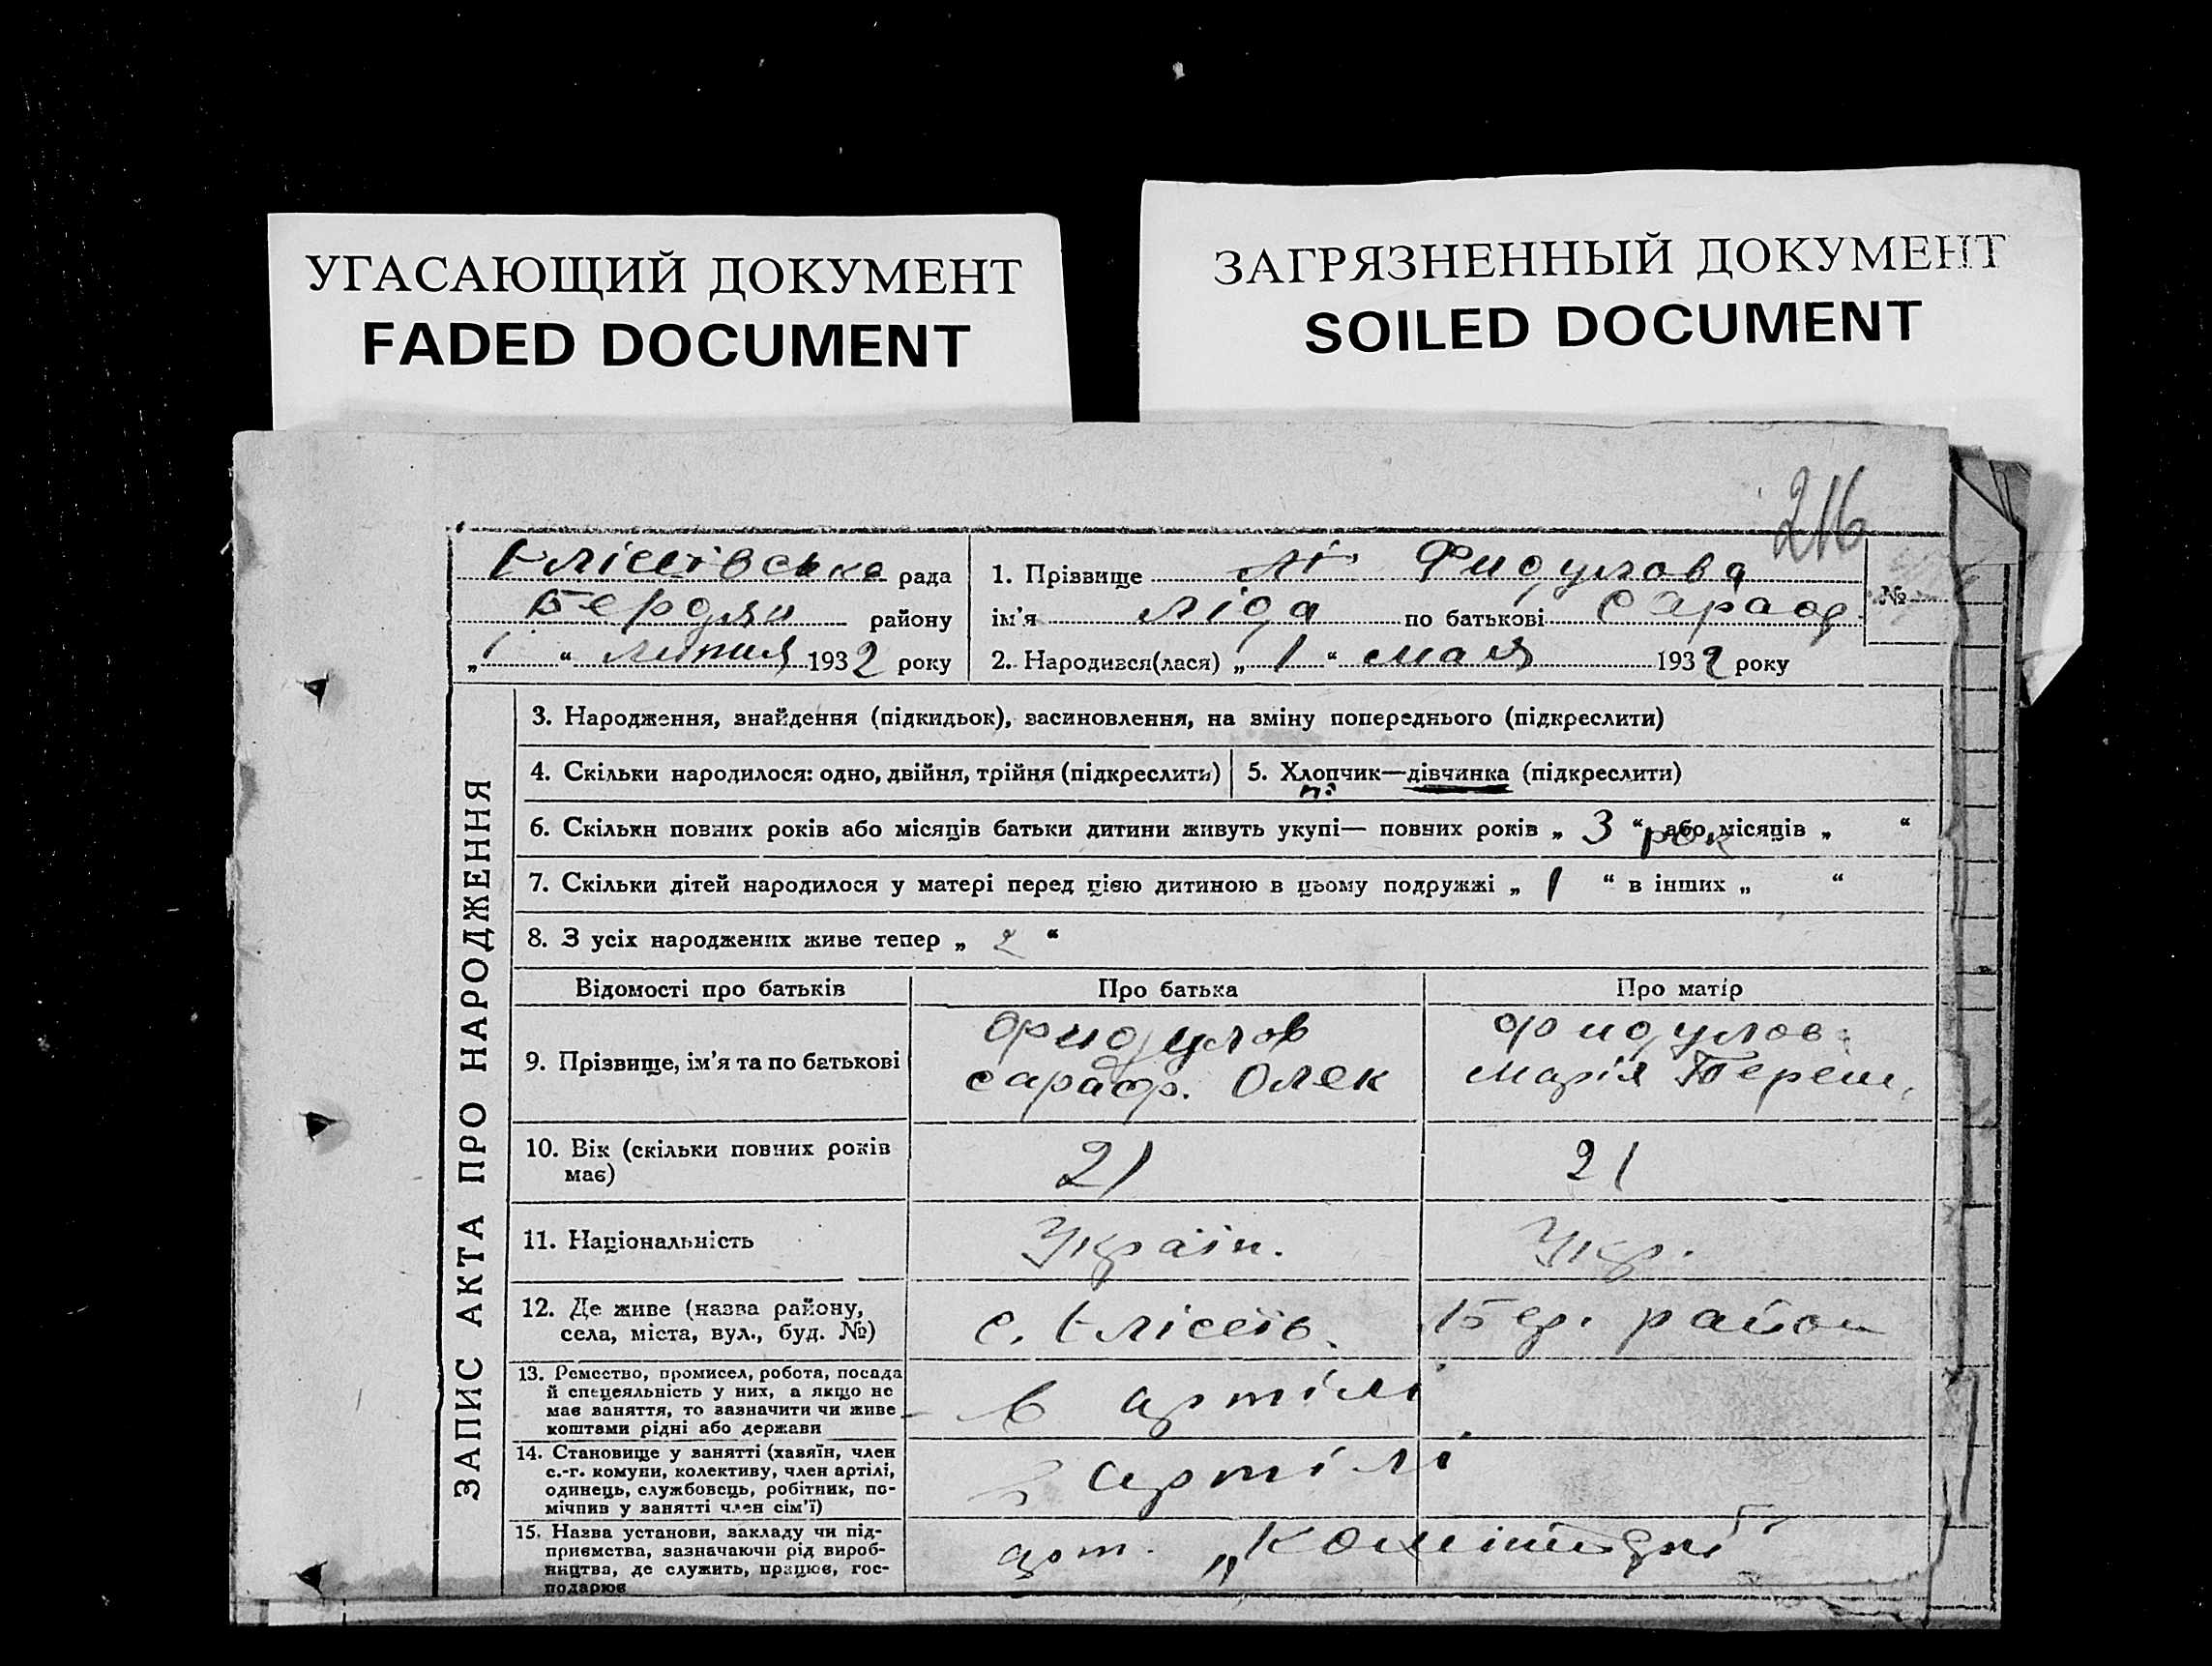 УГАСАЮЩИЙ ДОКУМЕНТ
FADED DOCUMENT
ЗАГРЯЗНЕННЫЙ ДОКУМЕНТ
SOILED DOCUMENT
216
Єлісеївська рада
Бердян району
„ 1 “ липня 1932 року
1. Прізвище Фидулова
ім'я Ліда по батькові Сараф.
2. Народився(лася) „ 1 “ мая 1932 року
№
ЗАПИС АКТА ПРО НАРОДЖЕННЯ
3. Народження, знайдення (підкидьок), засиновлення, на зміну попереднього (підкреслити)
4. Скільки народилося: одно, двійня, трійня (підкреслити)
5. Хлопчик—дівчинка (підкреслити)
6. Скільки повних років або місяців батьки дитини живуть укупі— повних років „ 3 “ рок або місяців „ “
7. Скільки дітей народилося у матері перед цією дитиною в цьому подружжі „ 1 “ в інших „ “
8. З усіх народжених живе тепер „ 2 “
Відомості про батьків Про батька Про матір
9. Прізвище, ім'я та по батькові
Фидулов
Сараф. Олек
Фидулов.
Марія Тереш.
10. Вік (скільки повних років
має)
21 21
11. Національність Україн. Укр.
12. Де живе (назва району,
села, міста, вул., буд. №)
с. Єлісеїв. Бер. район
13. Ремество, промисел, робота, посада
й спецеяльність у них, а якщо не
має заняття, то зазначити чи живе
коштами рідні або держави
в артілі
14. Становище у занятті (хазяїн, член
с.-г. комуни, колективу, член артілі,
одинець, службовець, робітник, по-
мічник у занятті член сім'ї)
артілі
15. Назва установи, закладу чи під-
приємства, зазначаючи рід вироб-
ництва, де служить, працює, гос-
подарює
арт.